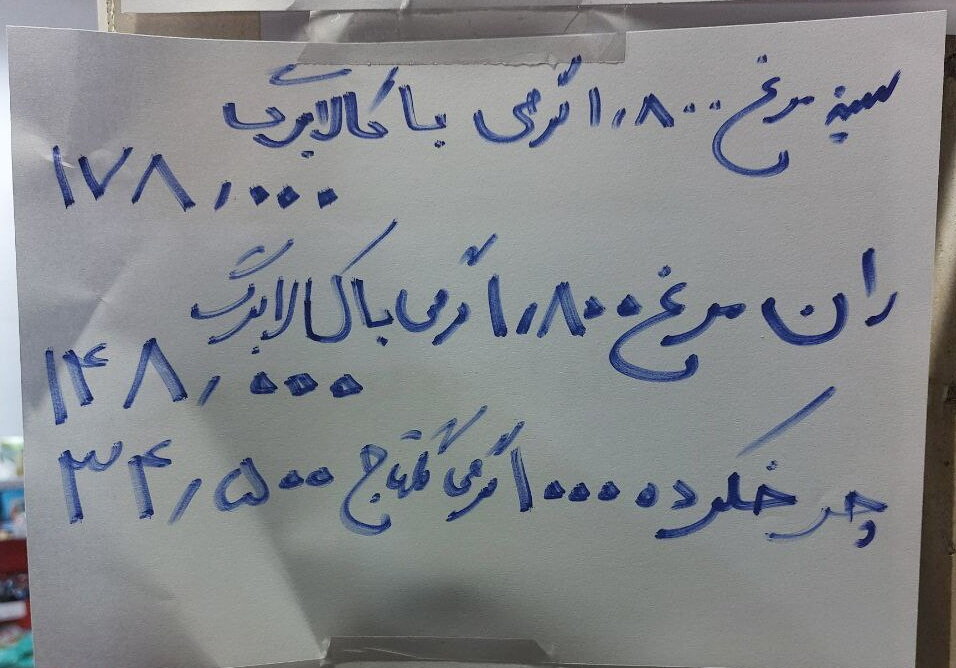 سینه مرغ ۱٫۸۰۰ گرمی با کالابرگ
۱۷۸٫۰۰۰
ران مرغ ۱٫۸۰۰ گرمی با کالابرگ
۱۴۸٫۰۰۰
چرخکرده ۱۰۰۰ گرمی گلتاج ۳۴٫۵۰۰